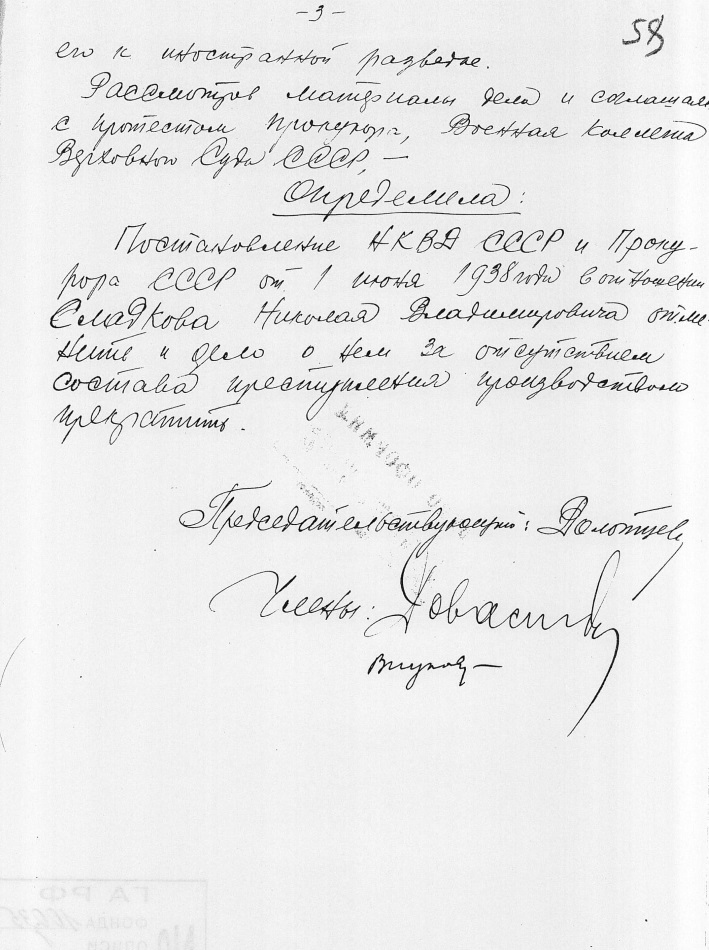 - 3 -
58
его к иностранной разведке.
Рассмотрев материалы дела и соглашая
с протестом Прокурора, Военная Коллегия
Верховного Суда СССР, —
Определила:
Постановление НКВД СССР и Проку-
рора СССР от 1 июня 1938 года в отношении
Сладкова Николая Владимировича отме-
нить и дело о нем за отсутствием
состава преступления производством
прекратить.
Председательствующий:
Члены:
ГАРФ
ФОНД
ОПИСИ
№